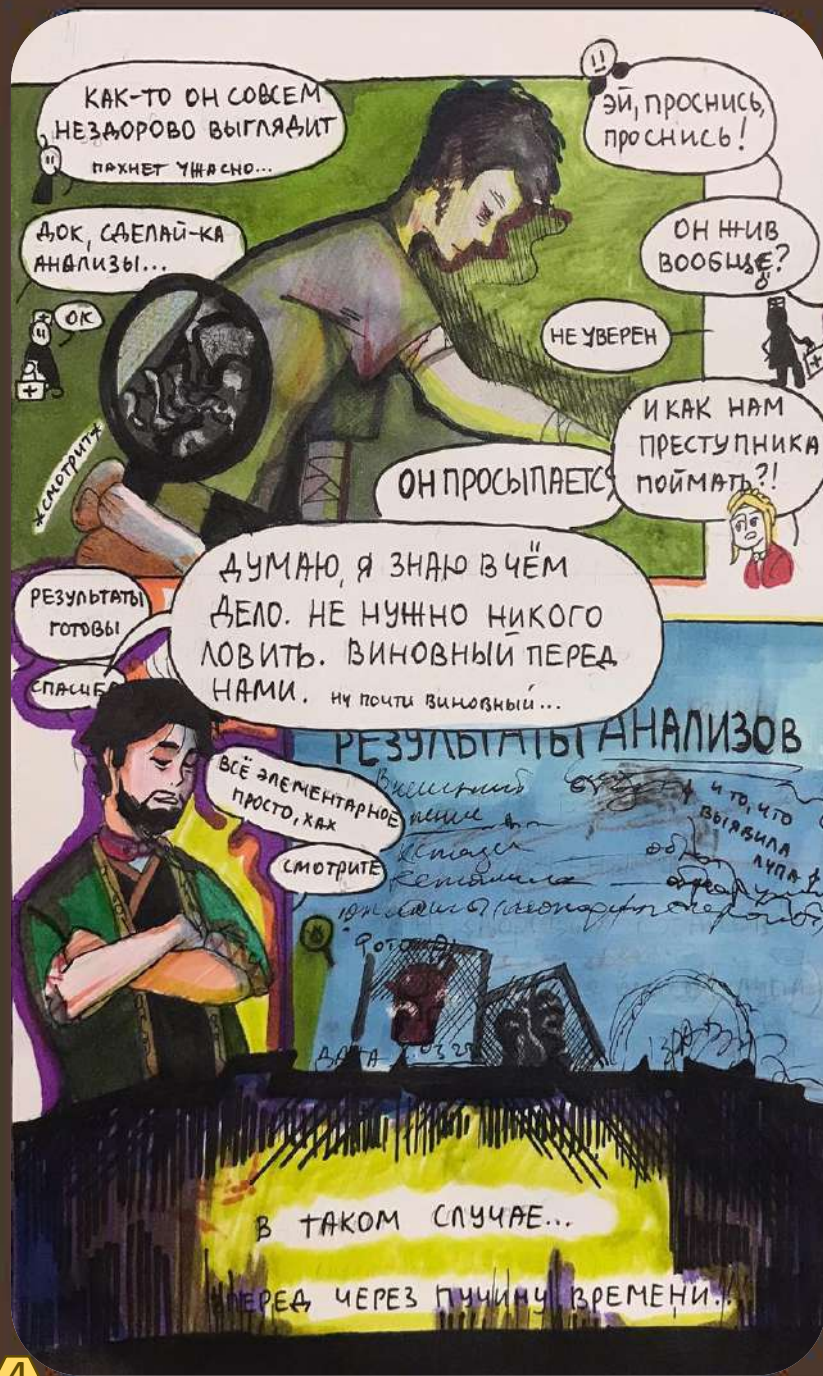 КАК-ТО ОН СОВСЕМ
НЕЗДОРОВО ВЫГЛЯДИТ
ПАХНЕТ УЖАСНО...
ЭЙ, ПРОСНИСЬ,
ПРОСНИСЬ!
ДОК, СДЕЛАЙ-КА
АНАЛИЗЫ...
ОК
ОН ЖИВ
ВООБЩЕ?
НЕ УВЕРЕН
И КАК НАМ
ПРЕСТУПНИКА
ПОЙМАТЬ?!
*СМОТРИТ*
ОН ПРОСЫПАЕТСЯ
РЕЗУЛЬТАТЫ
ГОТОВЫ
СПАСИБ
ДУМАЮ, Я ЗНАЮ В ЧЁМ
ДЕЛО. НЕ НУЖНО НИКОГО
ЛОВИТЬ. ВИНОВНЫЙ ПЕРЕД
НАМИ. НУ ПОЧТИ ВИНОВНЫЙ...
ВСЁ ЭЛЕМЕНТАРНОЕ
ПРОСТО, ХАХ
СМОТРИТЕ
РЕЗУЛЬТАТЫ АНАЛИЗОВ
И ТО, ЧТО
ВЫЯВИЛА
ЛУПА
ФОТО
ДАТА
В ТАКОМ СЛУЧАЕ...
ВПЕРЕД ЧЕРЕЗ ПУЧИНУ ВРЕМЕНИ...
4